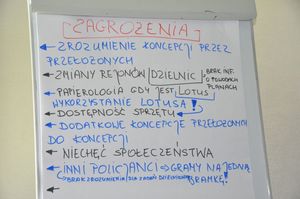 ZAGROŻENIA
← ZROZUMIENIE KONCEPCJI PRZEZ
PRZEŁOŻONYCH
← ZMIANY REJONÓW DZIELNIC BRAK INF.
O POWODACH
PLANACH
← PAPIEROLOGIA GDY JEST LOTUS
WYKORZYSTANIE LOTUSA!
← DOSTĘPNOŚĆ SPRZĘTU
← DODATKOWE KONCEPCJE PRZEŁOŻONYCH
DO KONCEPCJI
← NIECHĘĆ SPOŁECZEŃSTWA
← INNI POLICJANCI → GRAMY NA JEDNĄ
BRAMKĘ!
BRAK ZROZUMIENIA DLA ZADAŃ DZIELNICOWEGO
←